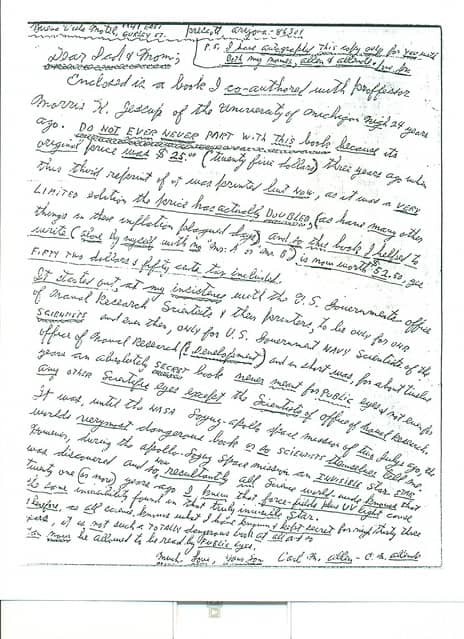 GURLEY ST. prescott, arizona - 86301
P.S. I have autographed this copy only for you with
Both my names, allen & allende
Dear Dad & Mom;
Enclosed is a book I co-authored with proffessor
Morris K. Jessup of the University of michigan nigh 24 years
ago. DO NOT EVER NEVER PART WITH this book because its
original price was $25.00 (twenty five dollars) three years ago when
this third reprint of it was printed but now, as it was a VERY
LIMITED edition the price has actually DOUBLED, (as have many other
things in these inflation plagued days) and so this book I helped to
write (alone By myself with no "mr. A" or "mr. B") is now worth $52.50, yes
FIFTY TWO dollars & fifty cents tax included.
It started out, at my insistence with the U.S. Governments office
of Naval Research Scientists & then printers, to be only for OUR
SCIENTISTS and even then, only for U.S. Government NAVY Scientists of the
office of Naval Research (& Development) and in short was, for about twelve
years an absolutely SECRET book never meant for PUBLIC eyes & not even for
any OTHER Scientific eyes except the Scientists of office of Naval Research.
It was, until the NASA Soyuz-apollo space mission of
worlds verymost dangerous book or so SCIENTISTS themselves tell me.
However, during the apollo-Soyuz Space mission an INVISIBLE Star
was discovered and so resultantly all Science world-wide knows that
twenty one (or more) years ago I knew that force-fields plus UV light could
be bone immediately found in that truly invisible Star.
Therefore, as all science knows what I have known & kept secret for nigh thirty three
years, it is not such a TOTALLY dangerous book at all and so
can now be allowed to be read by PUBLIC eyes.
Much Love, Your Son Carl M. Allen - C. M. Allende